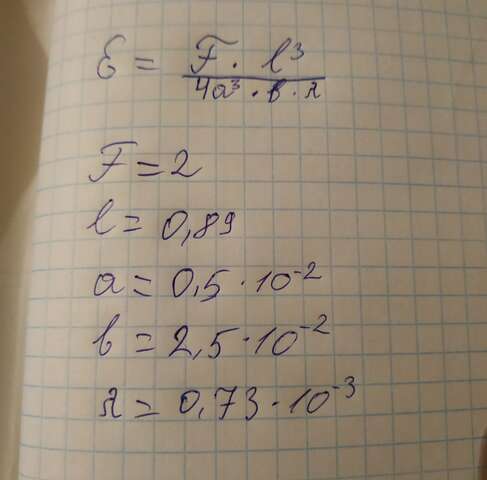 E = F · l³ / 4a³ · b · λ
F = 2
l = 0,89
a = 0,5 · 10⁻²
b = 2,5 · 10⁻²
λ = 0,73 · 10⁻³